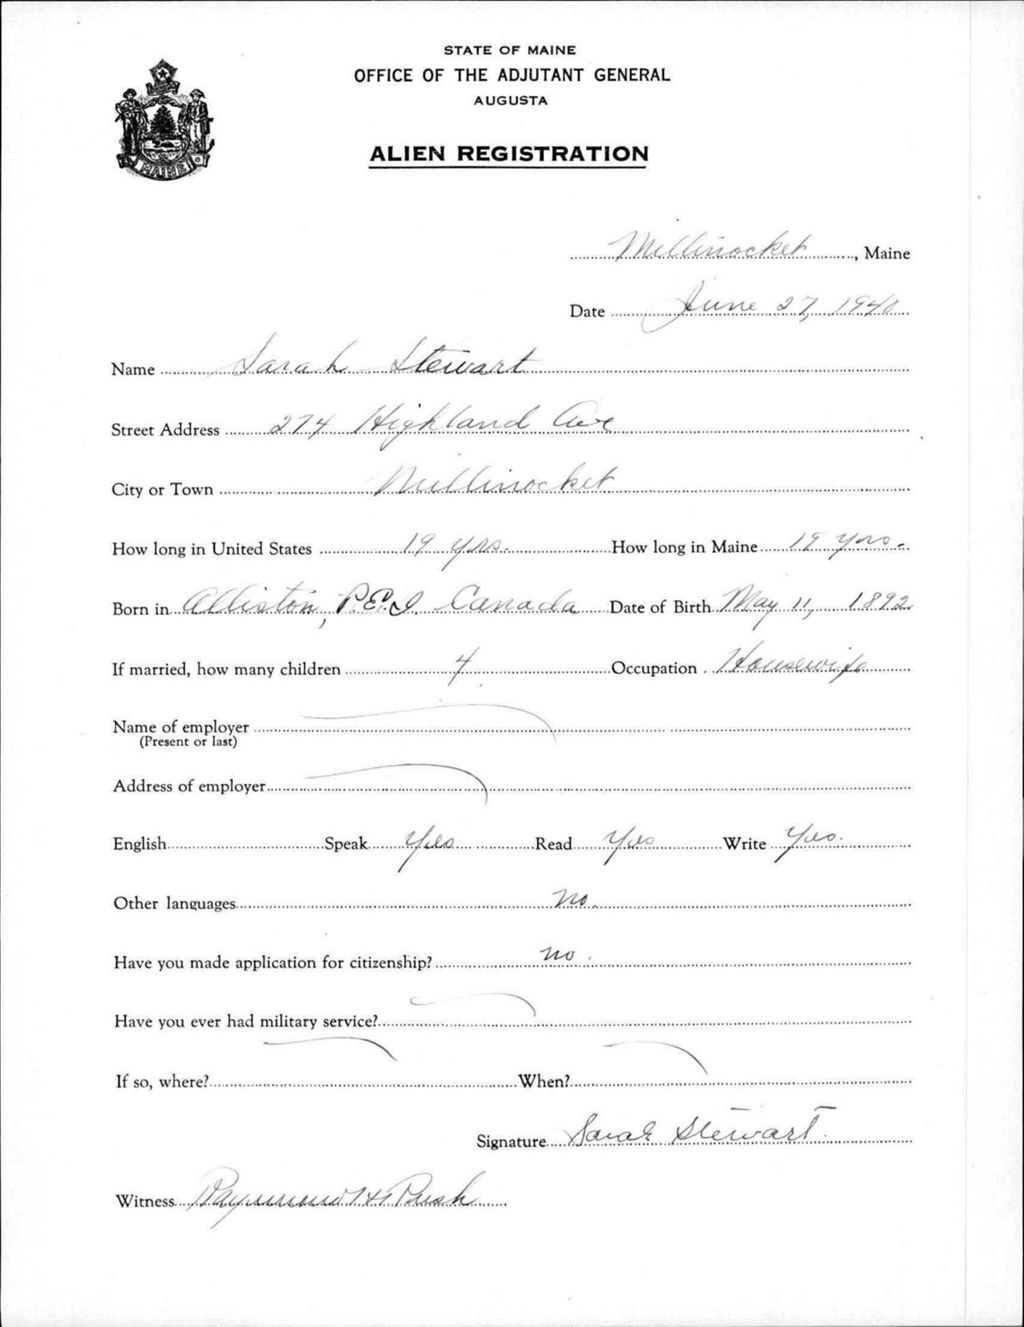 STATE OF MAINE
OFFICE OF THE ADJUTANT GENERAL
AUGUSTA
ALIEN REGISTRATION
MAINE
Millinocket, Maine
Date June 27, 1940
Name Sarah Stewart
Street Address 274 Highland Ave
City or Town Millinocket
How long in United States 19 yrs. How long in Maine 19 yrs.
Born in Alliston, P.E.I. Canada Date of Birth May 11, 1892
If married, how many children 4 Occupation Housewife
Name of employer
(Present or last)
Address of employer
English Speak Yes Read Yes Write Yes.
Other languages no.
Have you made application for citizenship? no.
Have you ever had military service?
If so, where? When?
Signature Sarah Stewart.
Witness Raymond H Rush